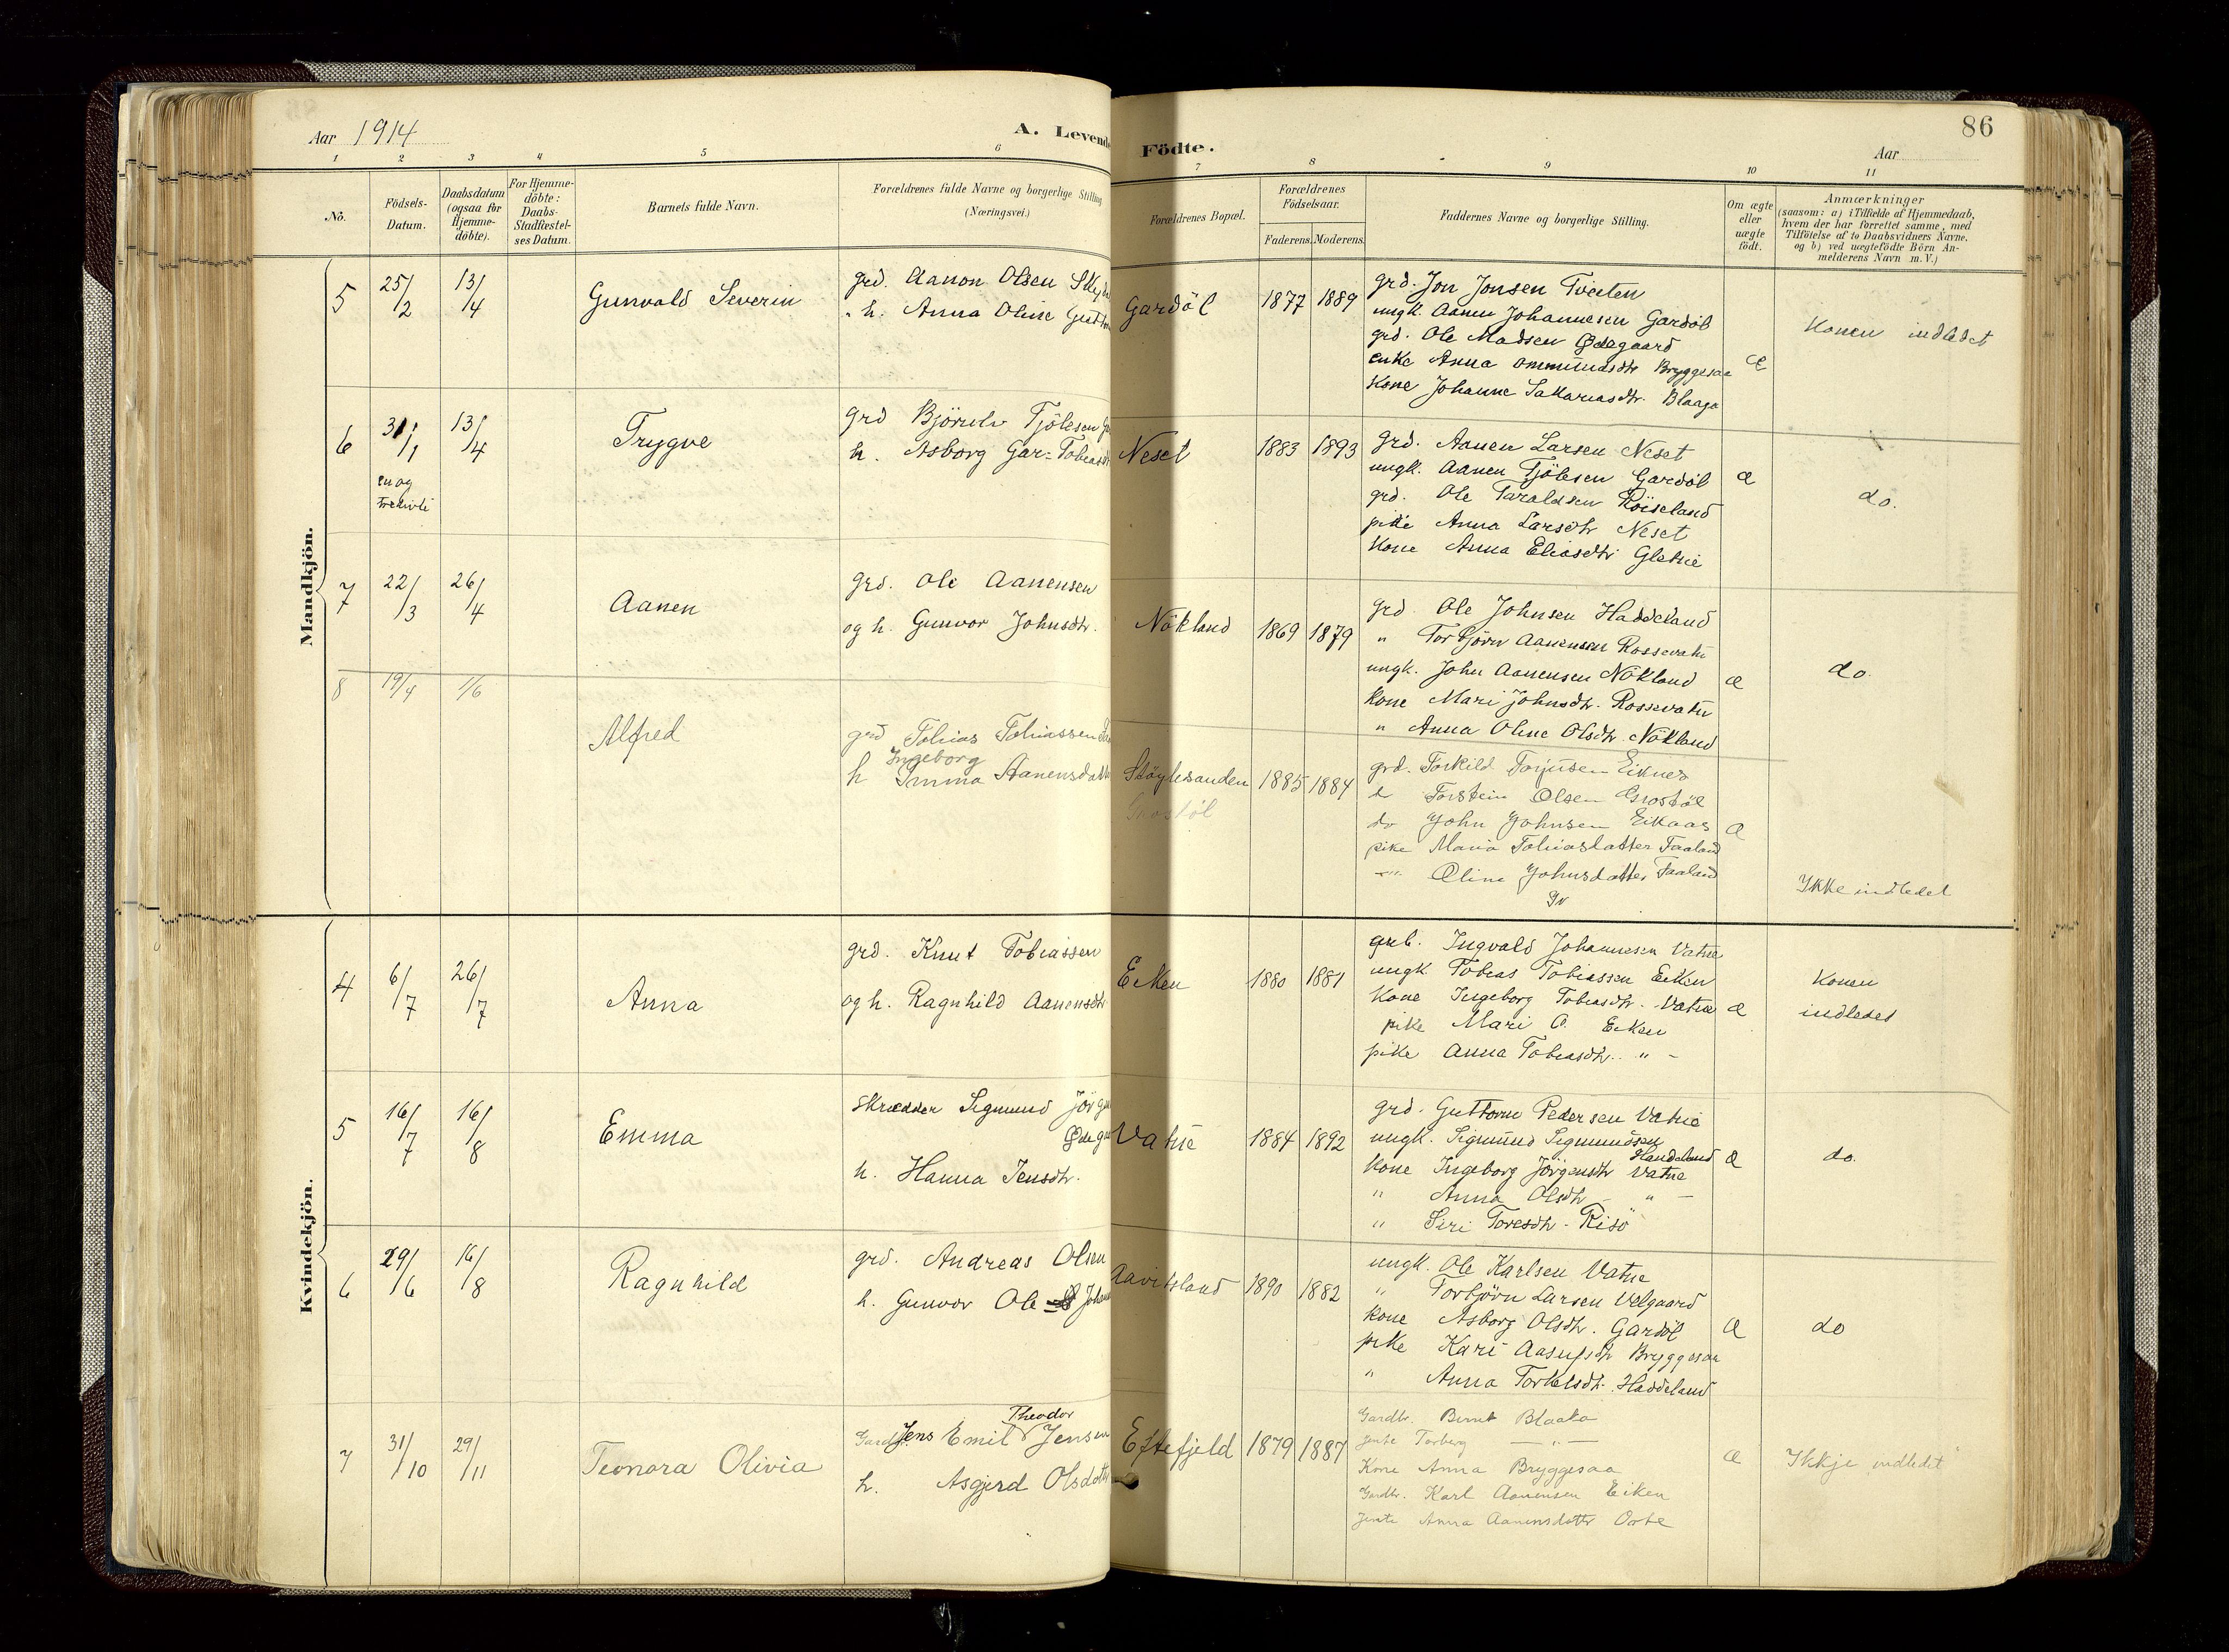 Aar 1914
A. Levende
Födte.
Aar
86
1 2 3 4 5 6 7 8 9 10 11
No.
Födsels-Datum.
Daabsdatum (ogsaa for Hjemme-döbte).
For Hjemme-döbte: Daabs-Stadfæstel-ses Datum.
Barnets fulde Navn.
Forældrenes fulde Navne og borgerlige Stilling (Næringsvei.)
Forældrenes Bopæl.
Forældrenes Födselsaar.
Faderens. Moderens.
Faddernes Navne og borgerlige Stilling.
Om ægte eller uægte födt.
Anmærkninger
(saasom: a) i Tilfælde af Hjemmedaab,
hvem der har forrettet samme, med
Tilföielse af to Daabsvidners Navne.
og b) ved uægtefödte Börn An-
melderens Navn m.V.)
Mandkjön.
5 25/2 13/4 Gunvald Severin
grd. Aanon Olsen
h. Anna Oline
Gardöl 1877 1889
grd. Jon Jonsen Tveiten
ungk. Aanen Johannesen Gardöl
grd. Ole Madsen Ødegaard
enke Anna Ommundsdtr Bryggesaa
Kone Johanne Sakariasdtr. Blaaga
æ
Konen indledet
6 31/1 13/4 Trygve
en og
tredivte
grd Björulv Fjölesen
h. Asborg Gar= Tobiasd
Neset 1883 1893
grd. Aanen Larsen Neset
ungk. Aanen Fjölesen Gardöl
grd. Ole Taraldsen Röiseland
pike Anna Larsdtr Neset
Kone Anna Eliasdtr Gletne
æ
do.
7 22/3 26/4 Aanen
grd. Ole Aanensen
og h. Gunvor Johnsdtr.
Nökland 1869 1879
grd. Ole Johnsen Haddeland
" Torbjörn Aanensen Rossevatn
ungk. John Aanensen Nökland
Kone Mari Johnsdtr. Rossevatn
" Anna Oline Olsdtr. Nökland
æ
do.
8 19/4 1/6 Alfred
grd Tobias Tobiassen
Ingeborg
h Emma Aanensdatt
Stöylesanden 1885 1884
Grostöl
grd. Torkild Torjusen Eiknes
do Torstein Olsen Grostöl
do John Johnsen Eikaas
pike Maria Tobiasdatter Faaland
" Oline Johnsdatter Faaland
æ
Ikke indledet
Kvindekjön.
4 6/7 26/7 Anna
grd. Knut Tobiassen
og h. Ragnhild Aanensdtr
Eiken 1880 1881
grb. Ingvald Johannesen Vatne
ungk Tobias Tobiassen Eiken
Kone Ingeborg Tobiasdtr. Vatne
pike Mari O. Eiken
pike Anna Tobiasdtr. " -
æ
Konen
indledet
5 16/7 16/8 Emma
Skrædder Sigmund Jörg
Ødega
h. Hanna Jensdtr.
Vatne 1884 1892
grd. Guttorm Pedersen Vatne
ungk. Sigmund Sigmundsen
Haddeland
Kone Ingeborg Jörgensdtr Vatne
" Anna Olsdtr - " -
" Siri Toresdtr - Risö
æ
do.
6 29/6 16/8 Ragnhild
grd. Andreas Olsen
h. Gunvor Ole Johan
Aavitsland 1890 1882
ungk. Ole Karlsen Vatne
" Torbjörn Larsen Velgaard
Kone Asborg Olsdtr. Gardöl
pike Kari Aasulfsdtr Bryggesaa
" Anna Torkelsdtr. Haddeland
æ
do
7 31/10 29/11 Teonora Olivia
Theodor
Gardbr. Jens Emil Jensen
h. Asgjerd Olsdatte
Eftefjeld 1879 1887
Gardbr. Bernt Blaaka
Jente Torberg — " —
Kone Anna Bryggesaa
Gardbr. Karl Aanensen Eiken
Jente Anna Aanensdatter
æ
Ikkje indledet